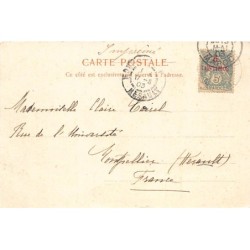 Imprimé
CARTE POSTALE.
Ce côté est exclusivement réservé à l'adresse.
HERAULT
Mademoiselle Claire
Rue de l'Université
Montpellier (Hérault)
France